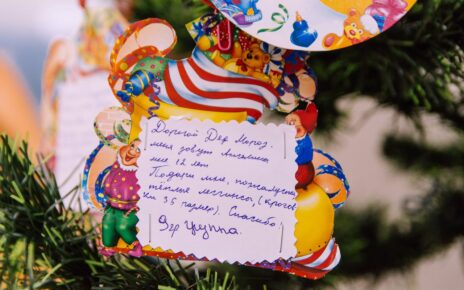 Дорогой Дед Мороз.
меня зовут Ангелина
мне 12 лет
Подари мне, пожалуйста
тёплые леггинсы, (кроссов
ки 35 размер). Спасибо.
9гр группа.